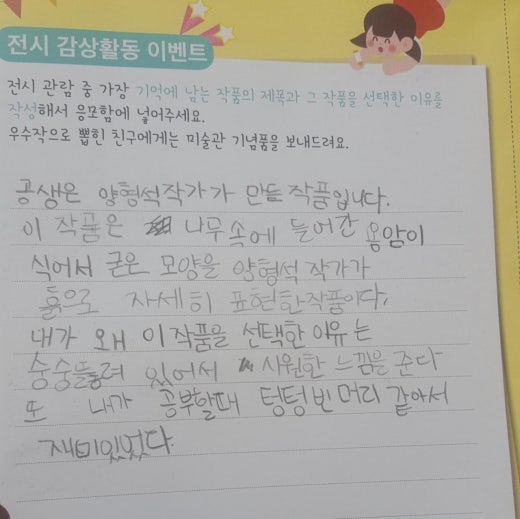 전시 감상활동 이벤트
전시 관람 중 가장 기억에 남는 작품의 제목과 그 작품을 선택한 이유를
작성해서 응모함에 넣어주세요.
우수작으로 뽑힌 친구에게는 미술관 기념품을 보내드려요.
공생은 양형석작가가 만든 작품입니다.
이 작품은 나무속에 들어간 용암이
식어서 굳은 모양을 양형석 작가가
흙으로 자세히 표현한작품이다.
내가 왜 이작품을 선택한 이유는
숭숭뚫려 있어서 시원한 느낌을 준다
또 내가 공부할때 텅텅빈머리 같아서
재미있었다